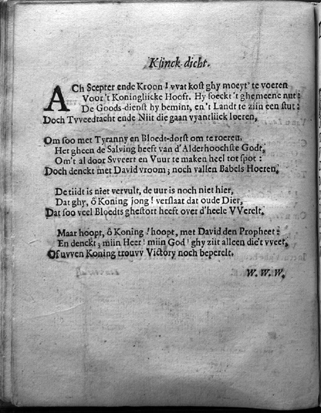 Kłinck dicht.
ACh Scepter ende Kroon! wat kost ghy moeyt' te voeren
Voor't Koninglijcke Hooft. Hy soeckt 't ghemeene nut:
De Goods-dienst hy bemint, en't Landt te zijn een stut:
Doch Tvveedracht ende Nijt die gaan vyantlijck loeren,
Om soo met Tyranny en Bloedt-dorst om te roeren.
Het gheen de Salving heeft van d'Alderhooghste Godt,
Om't al door Svveert en Vuur te maken heel tot spot:
Doch denckt met David vroom; noch vallen Babels Hoeren,
De tijdt is niet vervult, de uur is noch niet hier,
Dat ghy, ô Koning jong! verslaat dat oude Dier,
Dat soo veel Bloedts ghestort heeft over d'heele VVerelt,
Maar hoopt, ô Koning! hoopt, met David den Propheet:
En denckt; mijn Heer! mijn God! ghy zijt alleen die't vveet,
Of uvven Koning trouvv Victory noch beperelt.
W. W. W.